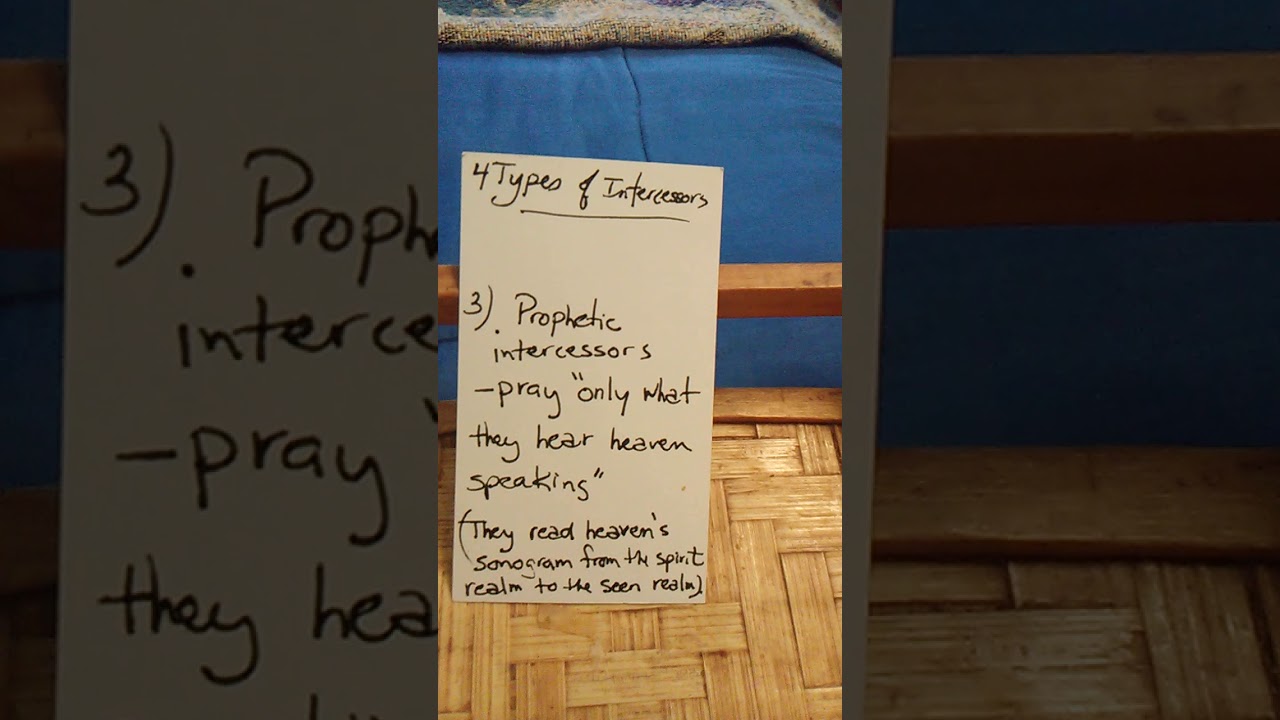 4 Types of Intercessors
3). Prophetic
intercessors
–pray "only what
they hear heaven
speaking"
(They read heaven's
sonogram from the spirit
realm to the seen realm).